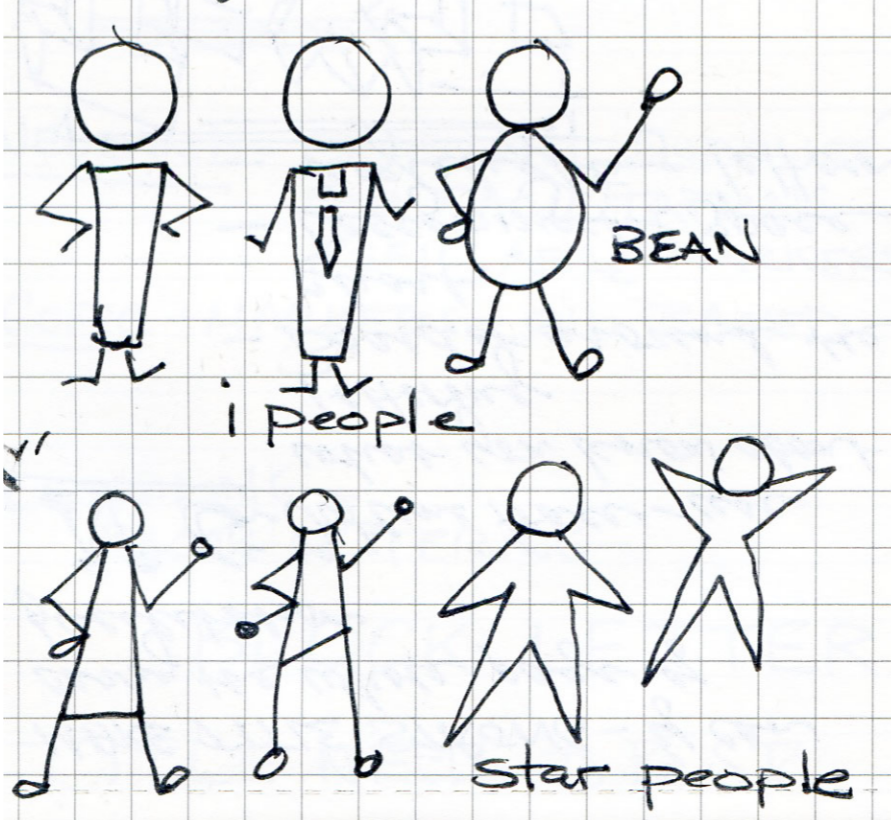 BEAN
i people
star people